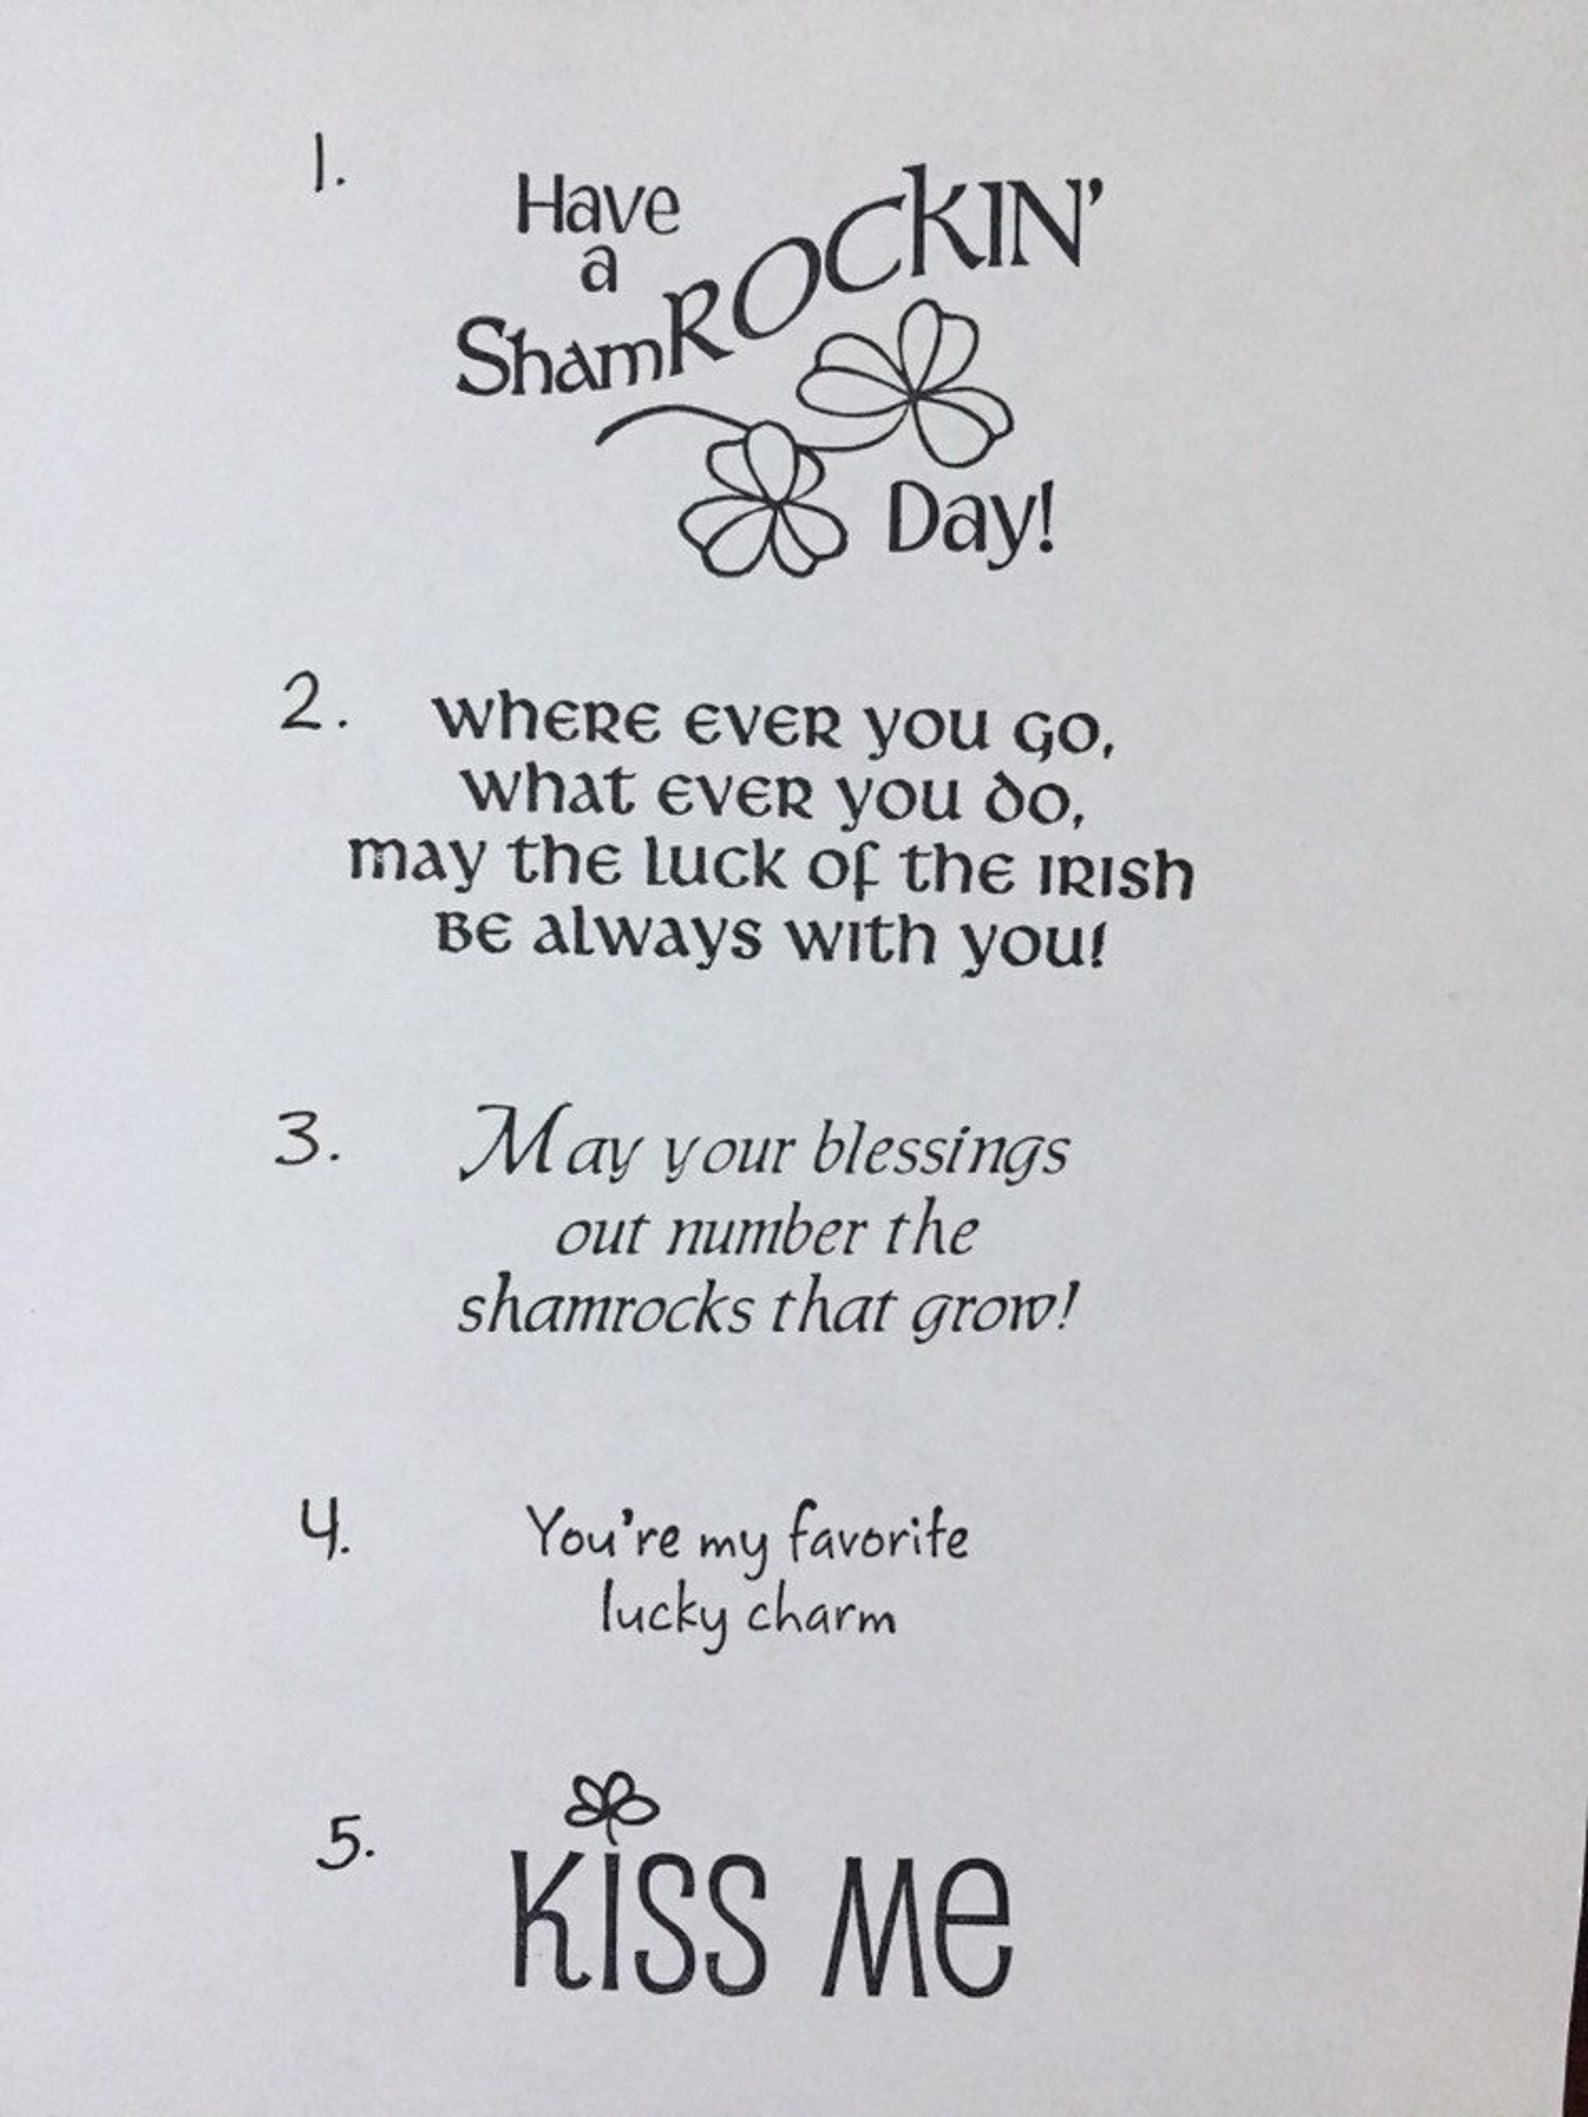 1.
Have
a
ShamROCKIN'
Day!
2.
where ever you go,
what ever you do,
may the luck of the Irish
be always with you!
3.
May your blessings
out number the
shamrocks that grow!
4.
You're my favorite
lucky charm
5.
Kiss Me